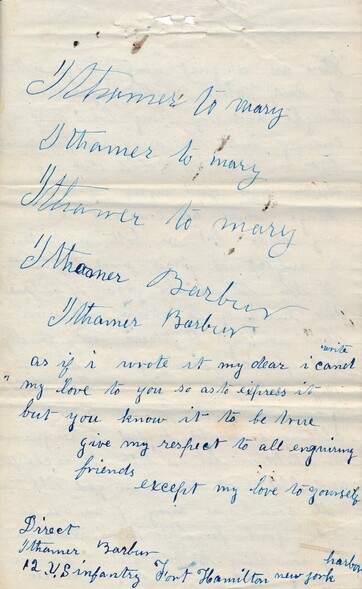 Ithamer to mary
Ithamer to mary
Ithamer to mary
Ithamer Barbur
Ithamer Barbur
as if i wrote it my dear i canot write
my love to you so as to express it
but you know it to be true
give my respect to all enquiring
friends
except my love to yourself
Direct
Ithamer Barbur
12 U S infantry Fort Hamilton new york harbor